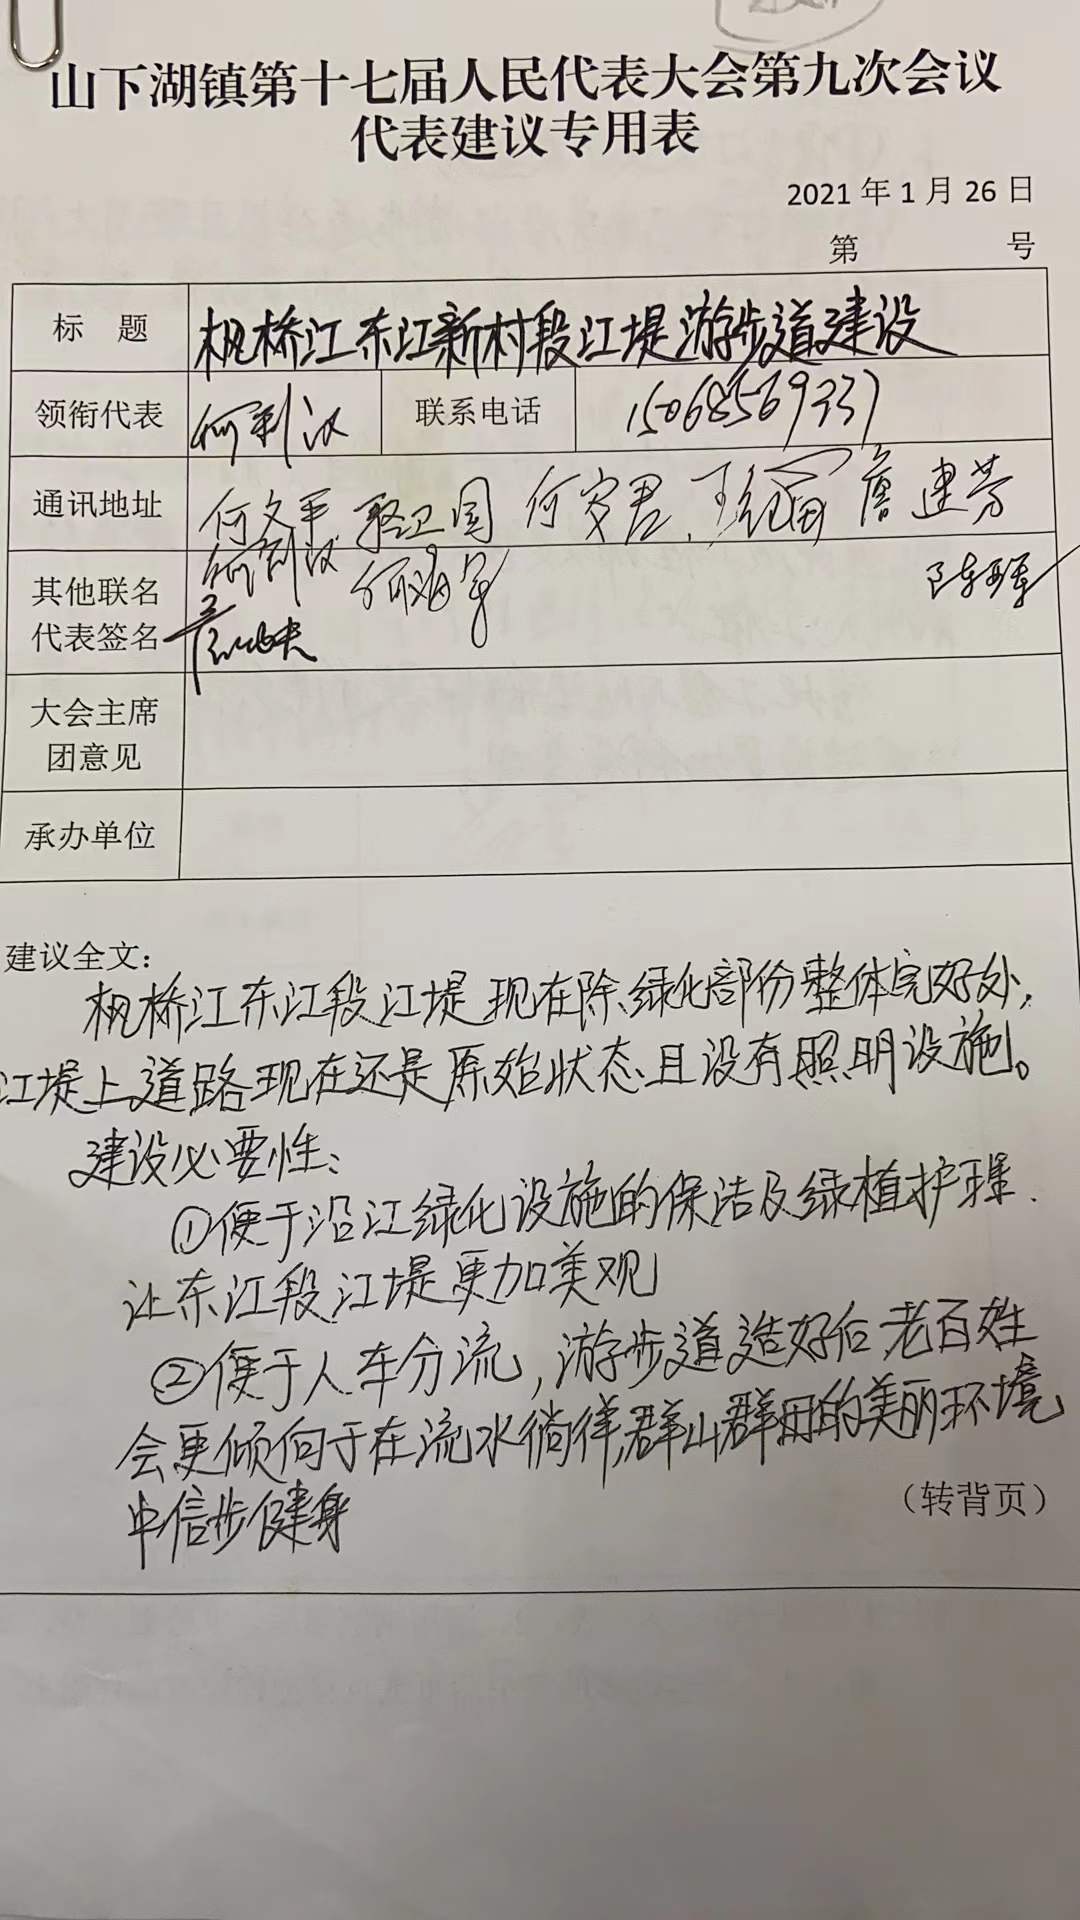 山下湖镇第十七届人民代表大会第九次会议
代表建议专用表
2021年1月26日
第 号
标 题 枫桥江东江新村段江堤游步道建设
领衔代表 何利汉 联系电话 15068569337
通讯地址 何文平 骆卫国 何岁君、 詹连芳
其他联名
代表签名 何利汉 何海军
大会主席
团意见
承办单位
建议全文：
枫桥江东江段江堤现在除绿化部份整体完好处，
江堤上道路现在还是原始状态且设有照明设施。
建设必要性：
①便于沿江绿化设施的保洁及绿植护理.
让东江段江堤更加美观
②便于人车分流，游步道造好后老百姓
会更倾向于在流水徜徉,群山群 的美丽环境
中信步健身
（转背页）